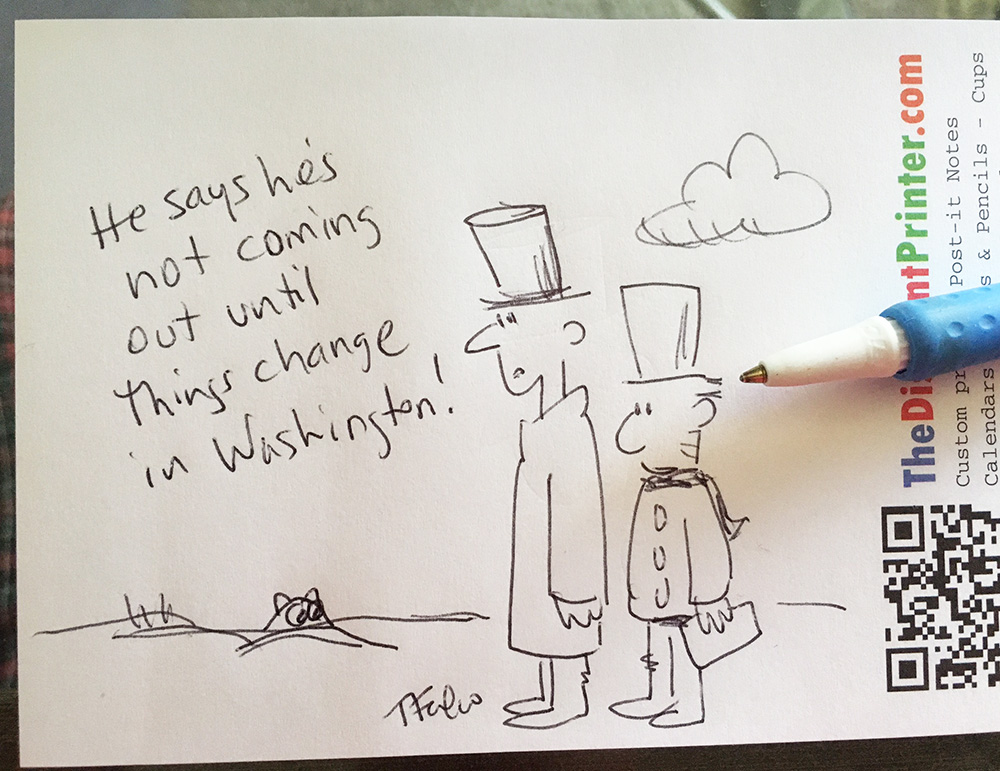 He says he's
not coming
out until
things change
in Washington!
TheDis ntPrinter.com
Custom pr Post-it Notes
Calendars s & Pencils - Cups